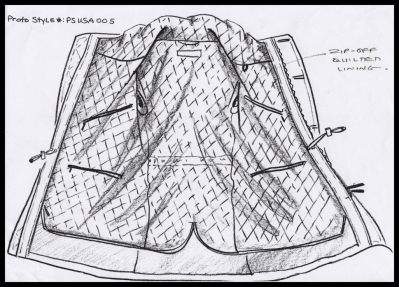 Proto Style#: PSUSA005
ZIP-OFF
QUILTED
LINING.